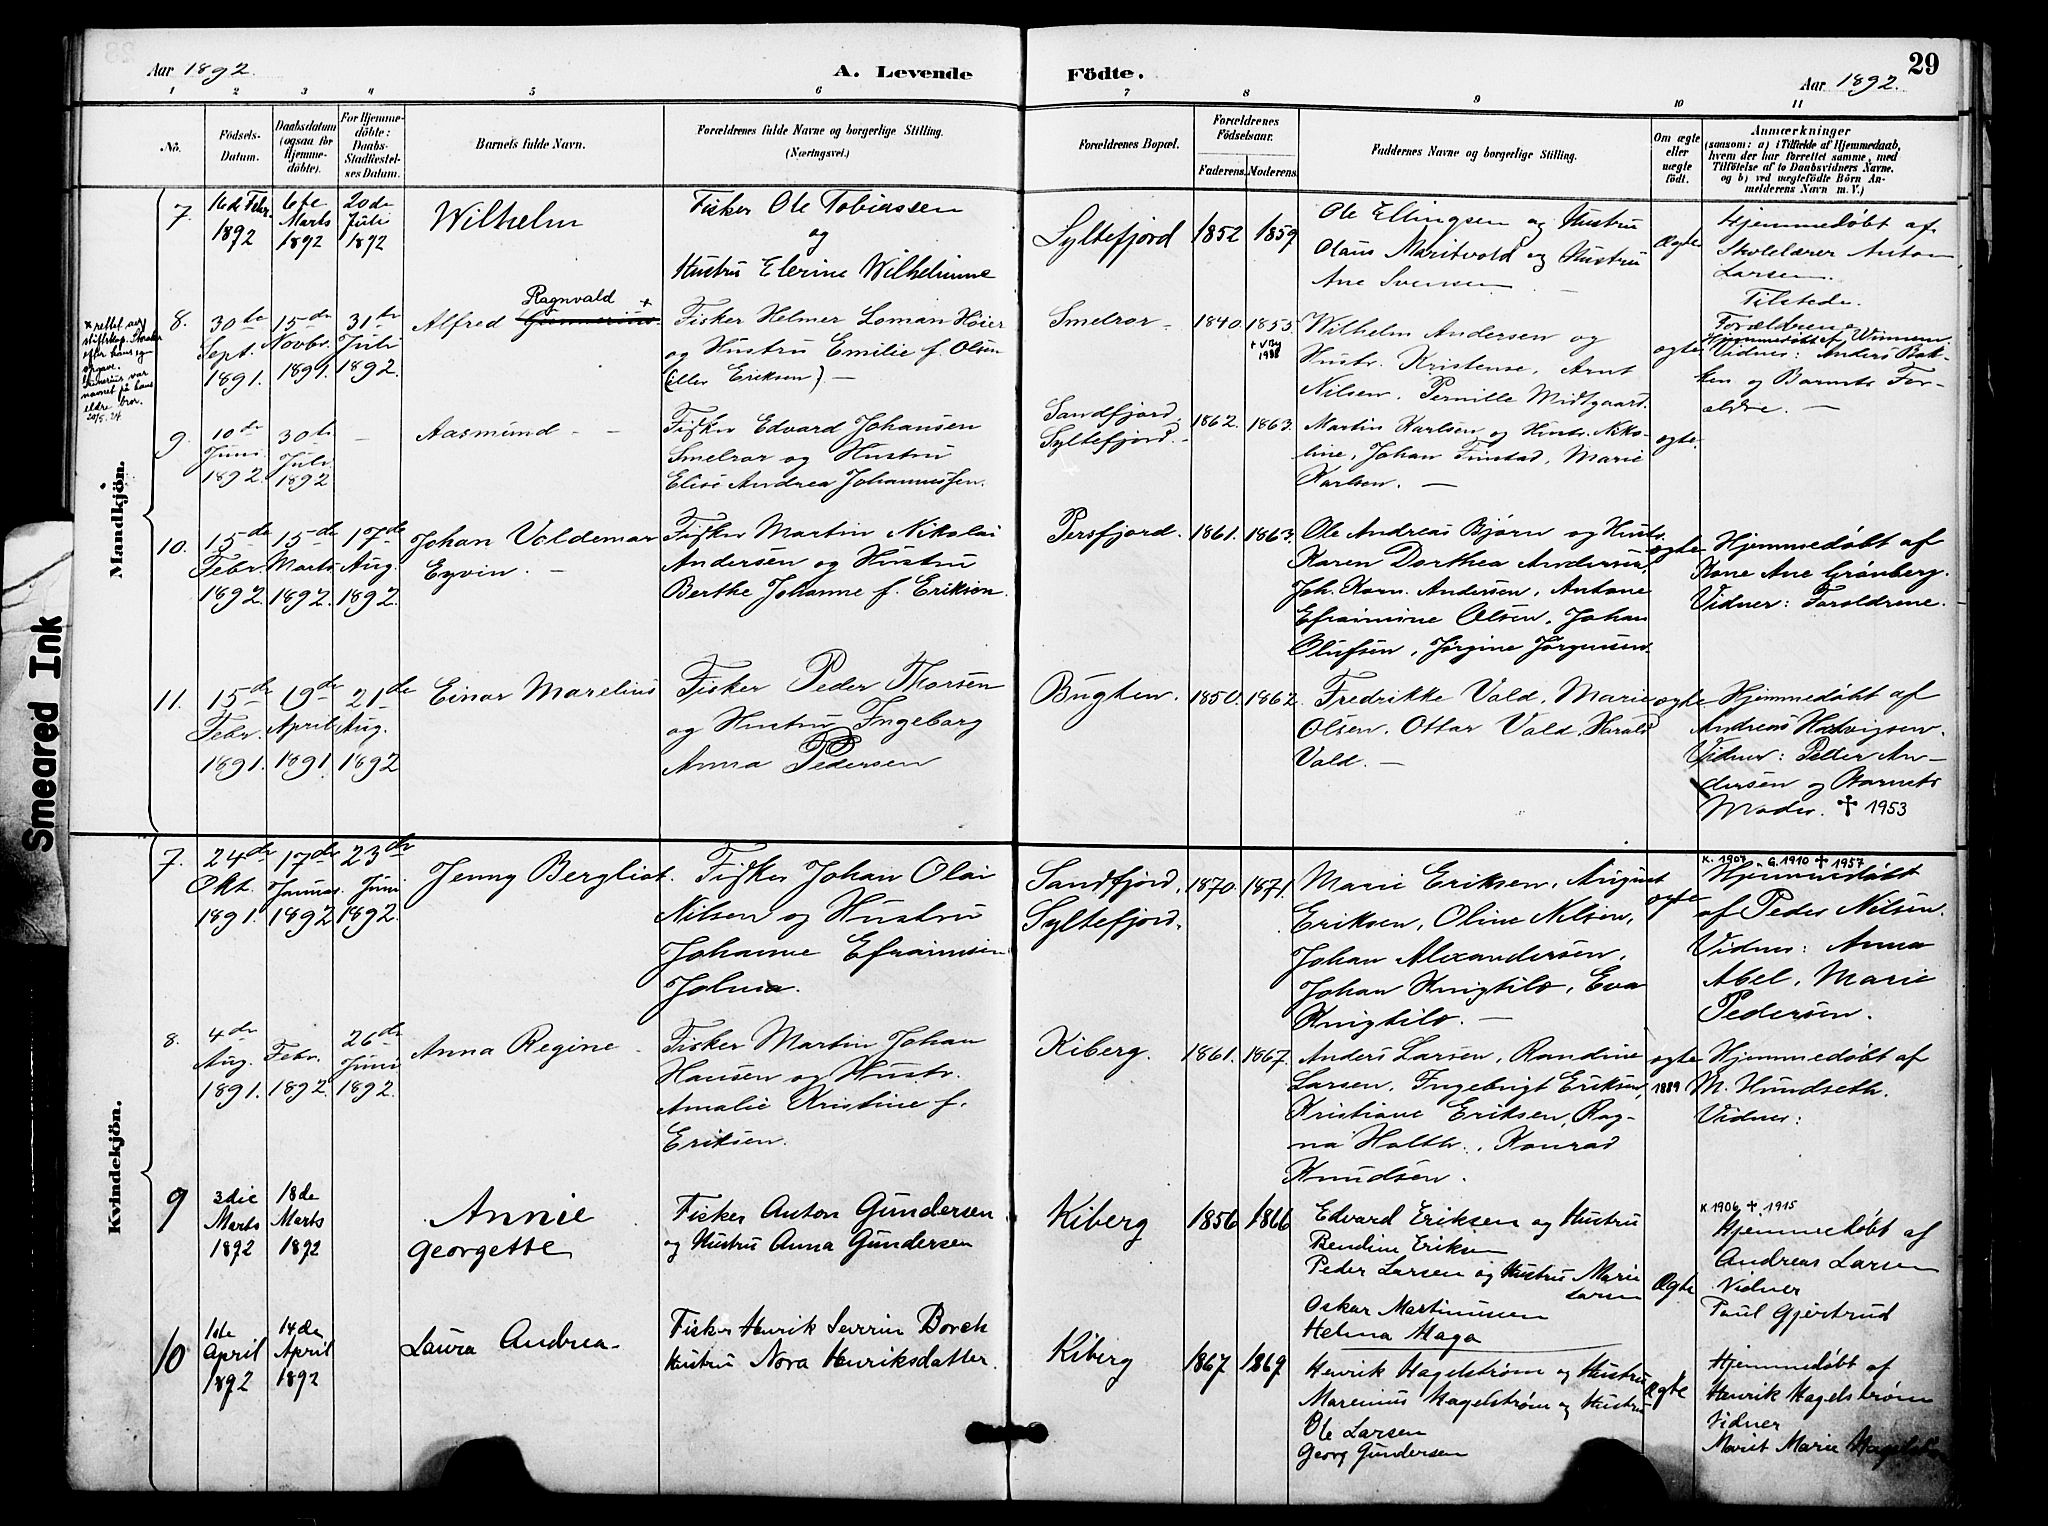 Aar 1892.
A. Levende
Födte.
29
Aar 1892.
1 2 3 4 5 6 7 8 9 10 11
No.
Födsels-
Datum.
Daabsdatum
(ogsaa for
Hjemme-
döbte).
For Hjemme-
döbte:
Daabs-
Stadfæstel-
ses Datum.
Barnets fulde Navn.
Forældrenes fulde Navne og borgerlige Stilling.
(Næringsvei.)
Forældrenes Bopæl.
Forældrenes
Födselsaar.
Faderens. Moderens.
Faddernes Navne og borgerlige Stilling.
Om ægte
eller
uægte
födt.
Anmærkninger
(saasom: a) i Tilfælde af Hjemmedaab,
hvem der har forrettet samme, med
Tilföielse af to Daabsvidners Navne,
og b) ved uægtefödte Börn An-
melderens Navn m. V.)
Mandkjön.
7.
16de Febr.
1892
6te
Marts
1892
20de
Juli
1892
Wilhelm
Fisker Ole Tobiassen
og
Hustru Elerine Wilhelmine
Syltefjord
1852
1859
Ole Ellingsen og Hustru
Olaus Maritvold og Hustru
Ane Svensen
Ægte
Hjemmedøbt af
Skolelærer Anton
Larsen.
Tilstede.
Forældrene
8.
30te
Sept.
1891.
15de
Novbr.
1891.
31te
Juli
1892.
Ragnvald +
Alfred
Fisker Helmer Loman Høier
og Hustru Emilie f. Olsen
(eller Eriksen) —
Smelror
1840.
1855
Wilhelm Andersen og
Hustr. Kristense, Arnt
Nilsen, Pernille Midtgaard.
ægte
Vidner: Anders Bak-
ken og Barnets For-
ældre. —
9.
10de
Juni
1892.
30te
Juli
1892
—
Aasmund — —
Fisker Edvard Johansen
Smelror og Hustru
Elise Andrea Johannessen.
Sandfjord,
Syltefjord.
1862.
1863.
Martin Karlsen og Hustr. Niko-
line, Johan Finstad, Marie
Karlsen. —
ægte.
10.
15de
Febr.
1892.
15de
Marts
1892.
17de
Aug.
1892.
Johan Valdemar
Eyvin. —
Fisker Martin Nikolai
Andersen og Hustru
Berthe Johanne f. Eriksen.
Persfjord.
1861.
1863.
Ole Andreas Bjørn og Hustr.
Karen Dorthea Andersen,
Joh. Korn. Andersen, Antone
Efraimine Olsen, Johan
Olufsen, Jørgine Jørgensen.
ægte
Hjemmedøbt af
Kone Ane Grønberg.
Vidner: Forældrene.
11.
15de
Febr.
1891.
19de
April
1891.
21de
Aug.
1892
Einar Marelius
Fisker Peder Thorsen
og Hustru Ingeborg
Anna Pedersen
Bugten.
1850.
1862.
Fredrikke Vald, Marie
Olsen, Ottar Vald, Harald
Vald. —
ægte
Hjemmedøbt af
Andreas Hedvigsen.
Vidner: Peder An-
dersen og Barnets
Moder. ✝ 1953
Kvindekjön.
7.
24de
Okt.
1891.
17de
Januar
1892
23de
Juni
1892.
Jenny Bergliot.
Fisker Johan Olai
Nilsen og Hustru
Johanne Efraimsen
Johnsa.
Sandfjord,
Syltefjord.
1870.
1871.
Marie Eriksen, August
Eriksen, Oline Nilsen,
Johan Alexandersen,
Johan Knigtilo, Eva
Knigtilo. —
ægte
K. 1907. G. 1910 ✝ 1957
Hjemmedøbt
af Peder Nilsen.
Vidner: Anna
Abel, Marie
Pedersen.
8.
4de
Aug.
1891.
Febr.
1892.
26de
Juni
1892.
Anna Regine —
Fisker Martin Johan
Hansen og Hustr.
Amalie Kristine f.
Eriksen.
Kiberg.
1861.
1867.
Anders Larsen, Randine
Larsen, Ingebrigt Eriksen,
Kristiane Eriksen, Rag-
na Holth, Konrad
Knudsen.
ægte
1889
Hjemmedøbt af
M. Hundseth.
Vidner:
9
3die
Marts
1892
18de
Marts
1892
Annie
Georgette
Fisker Anton Gundersen
og Hustru Anna Gundersen
Kiberg
1856
1866
Edvard Eriksen og Hustru
Bendine Eriksen
Peder Larsen og Hustru Marie
Larsen
Oskar Martinussen
Helma Maga
Ægte
K. 1906 ✝. 1915
Hjemmedøbt af
Andreas Larsen
Vidner
Paul Gjertrud
10
1ste
April
1892
14de
April
1892
Laura Andrea
Fisker Henrik Severin Borch
Hustru Nora Henriksdatter.
Kiberg
1867
1869
Henrik Hagelstrøm og Hustru
Marenius Hagelstrøm og Hustru
Ole Larsen
Georg Gundersen
Ægte
Hjemmedøbt af
Henrik Hagelstrøm
Vidner
Marit Marie
Smeared Ink